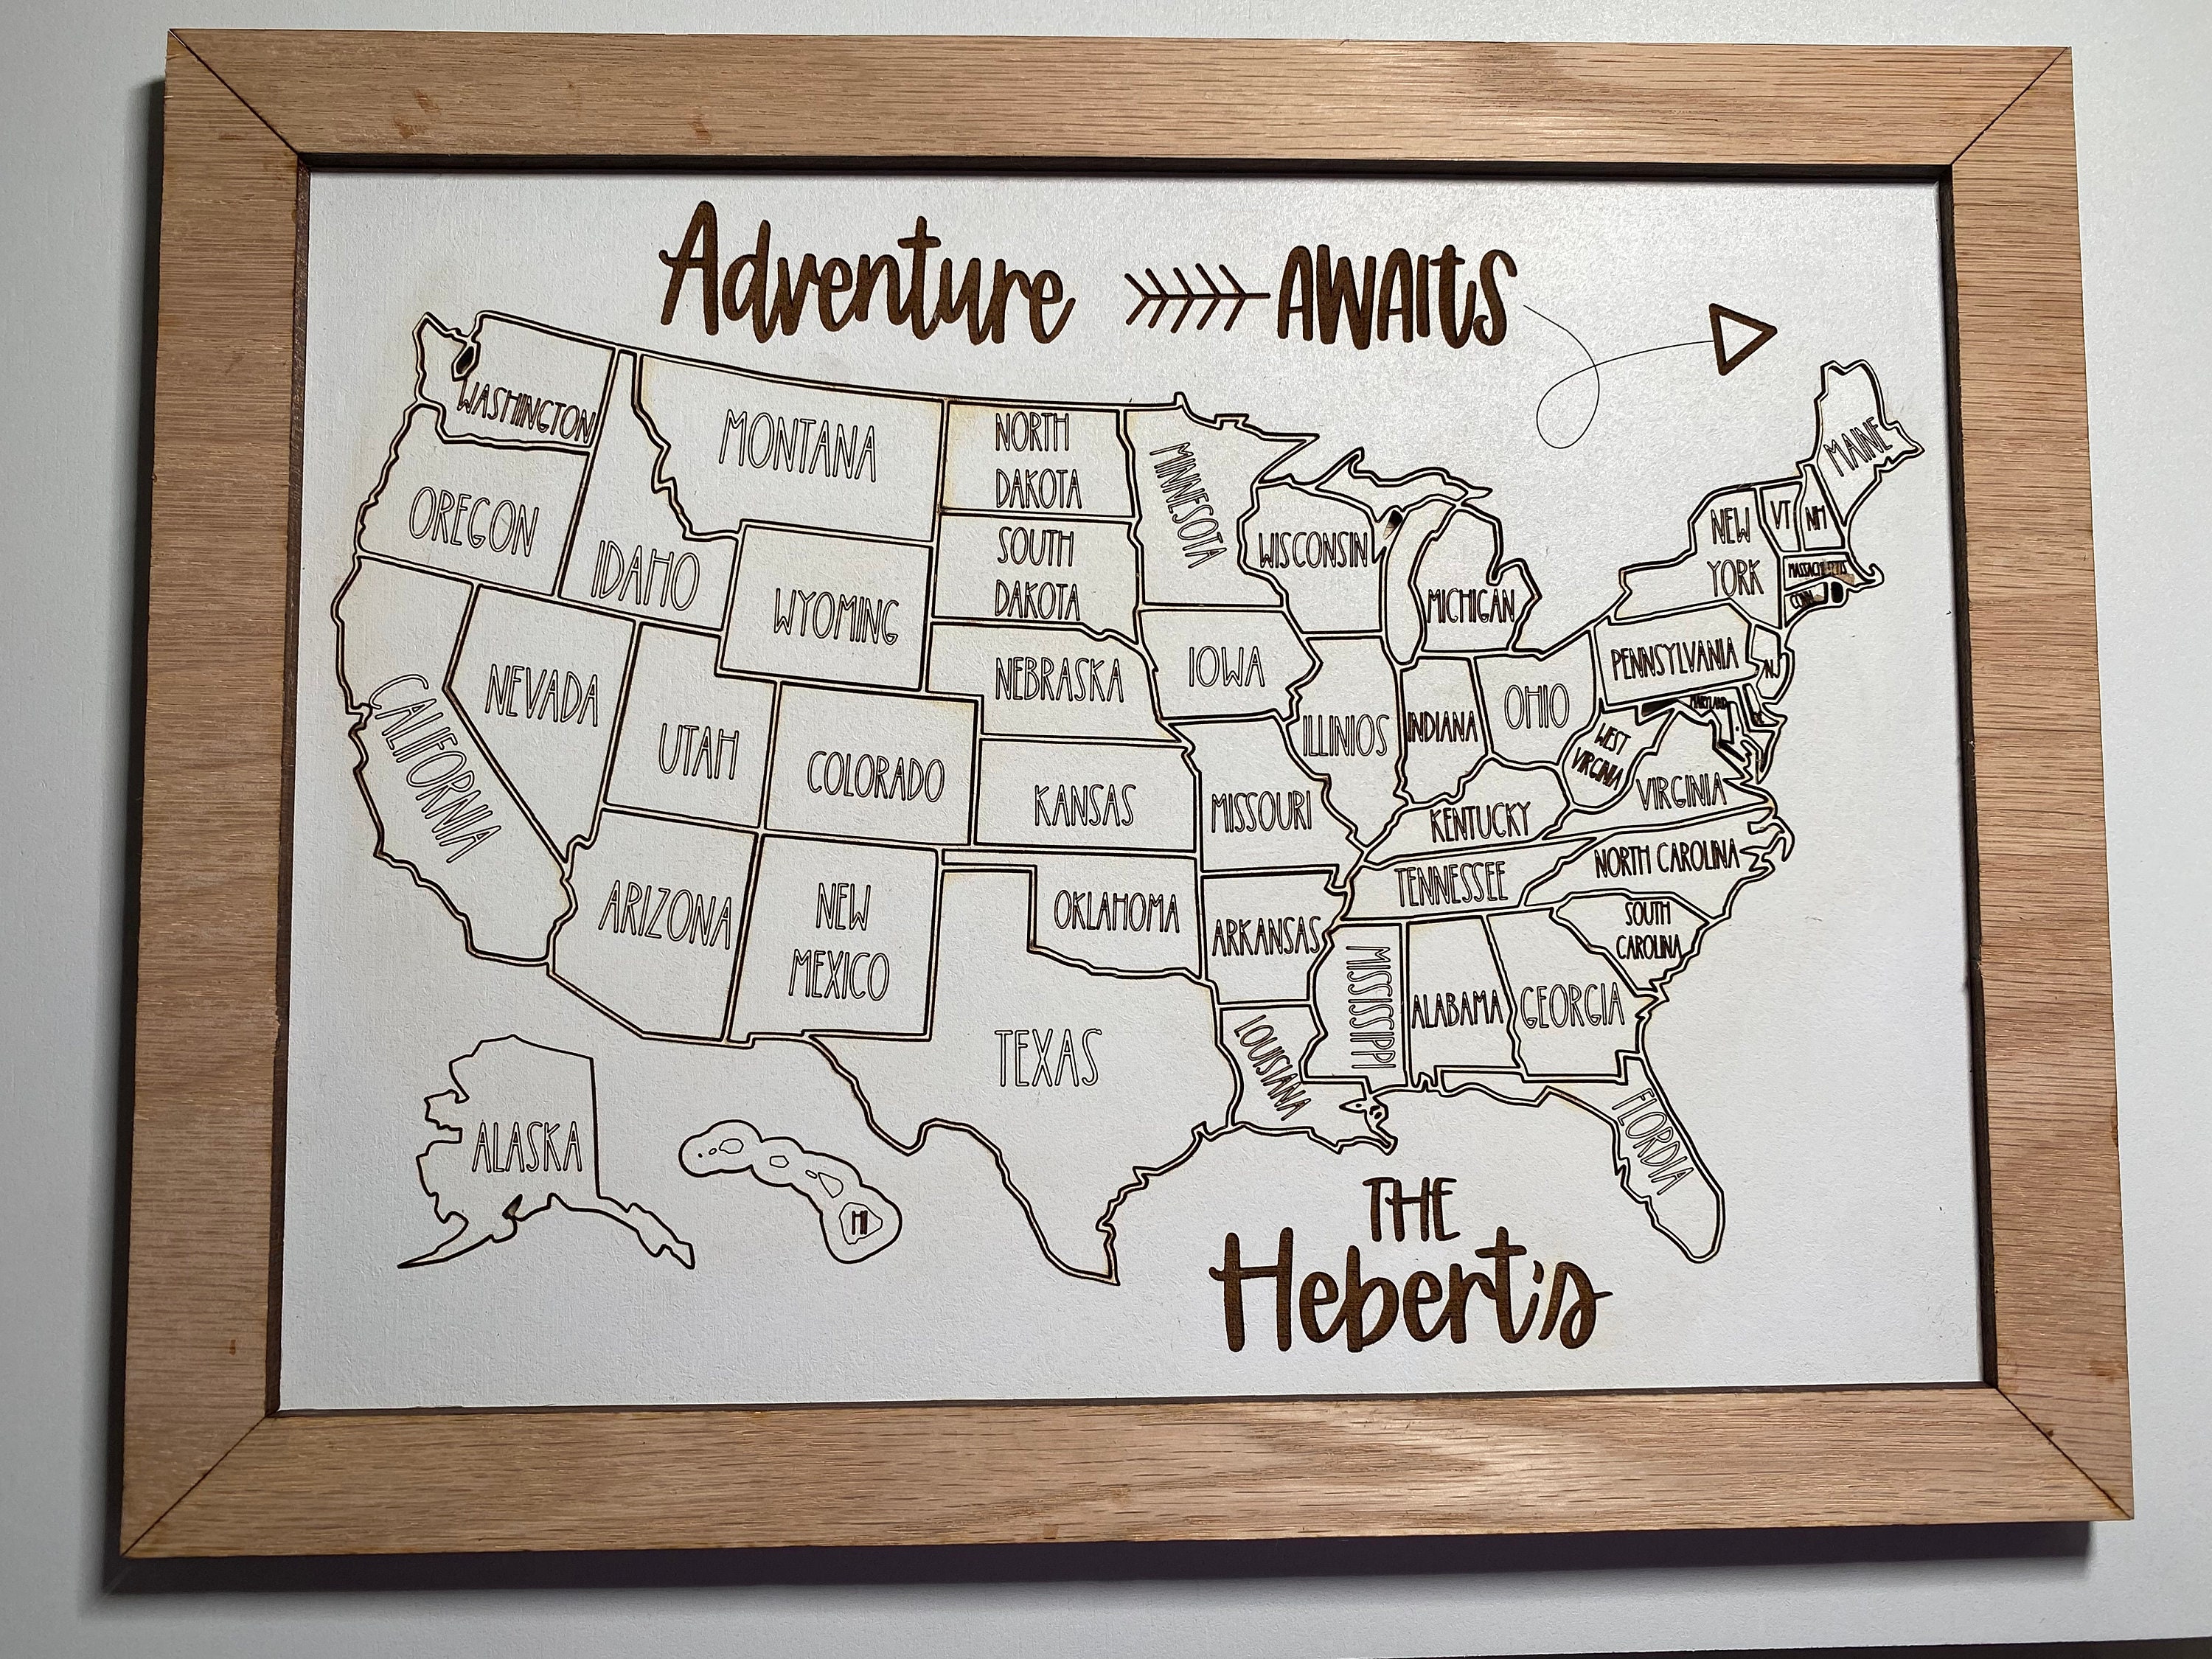 Adventure AWAITS
WASHINGTON
MONTANA
NORTH
DAKOTA
MINNESOTA
MAINE
OREGON
IDAHO
WYOMING
SOUTH
DAKOTA
WISCONSIN
MICHIGAN
NEW
YORK
VT
NH
MASSACHUSETTS
CONN
NEVADA
UTAH
COLORADO
NEBRASKA
IOWA
ILLINIOS
INDIANA
OHIO
PENNSYLVANIA
NJ
MARYLAND
CALIFORNIA
KANSAS
MISSOURI
KENTUCKY
WEST
VIRGINIA
VIRGINIA
ARIZONA
NEW
MEXICO
OKLAHOMA
ARKANSAS
TENNESSEE
NORTH CAROLINA
SOUTH
CAROLINA
TEXAS
LOUISIANA
MISSISSIPPI
ALABAMA
GEORGIA
FLORDIA
ALASKA
HI
THE
Hebert's